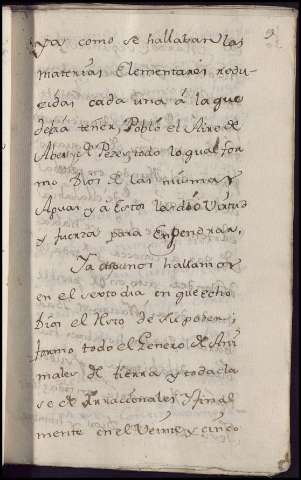 Ya como se hallaban las
materias Elementares redu-
cidas cada una á la que
debia tener, Pobló el Aire de
Abes, el Pezes, todo lo qual for
mo Dios de las mismas
Aguas, y á Estos les dió Virtud
y fuerza para Enjendrar.
Ya aqui nos hallamos
en el sexto dia en que echo
Dios el Resto de su poder,
formo todo el Genero de Ani
males de tierra y toda cla
se de Irracionales y final
mente en el Veinte y cinco